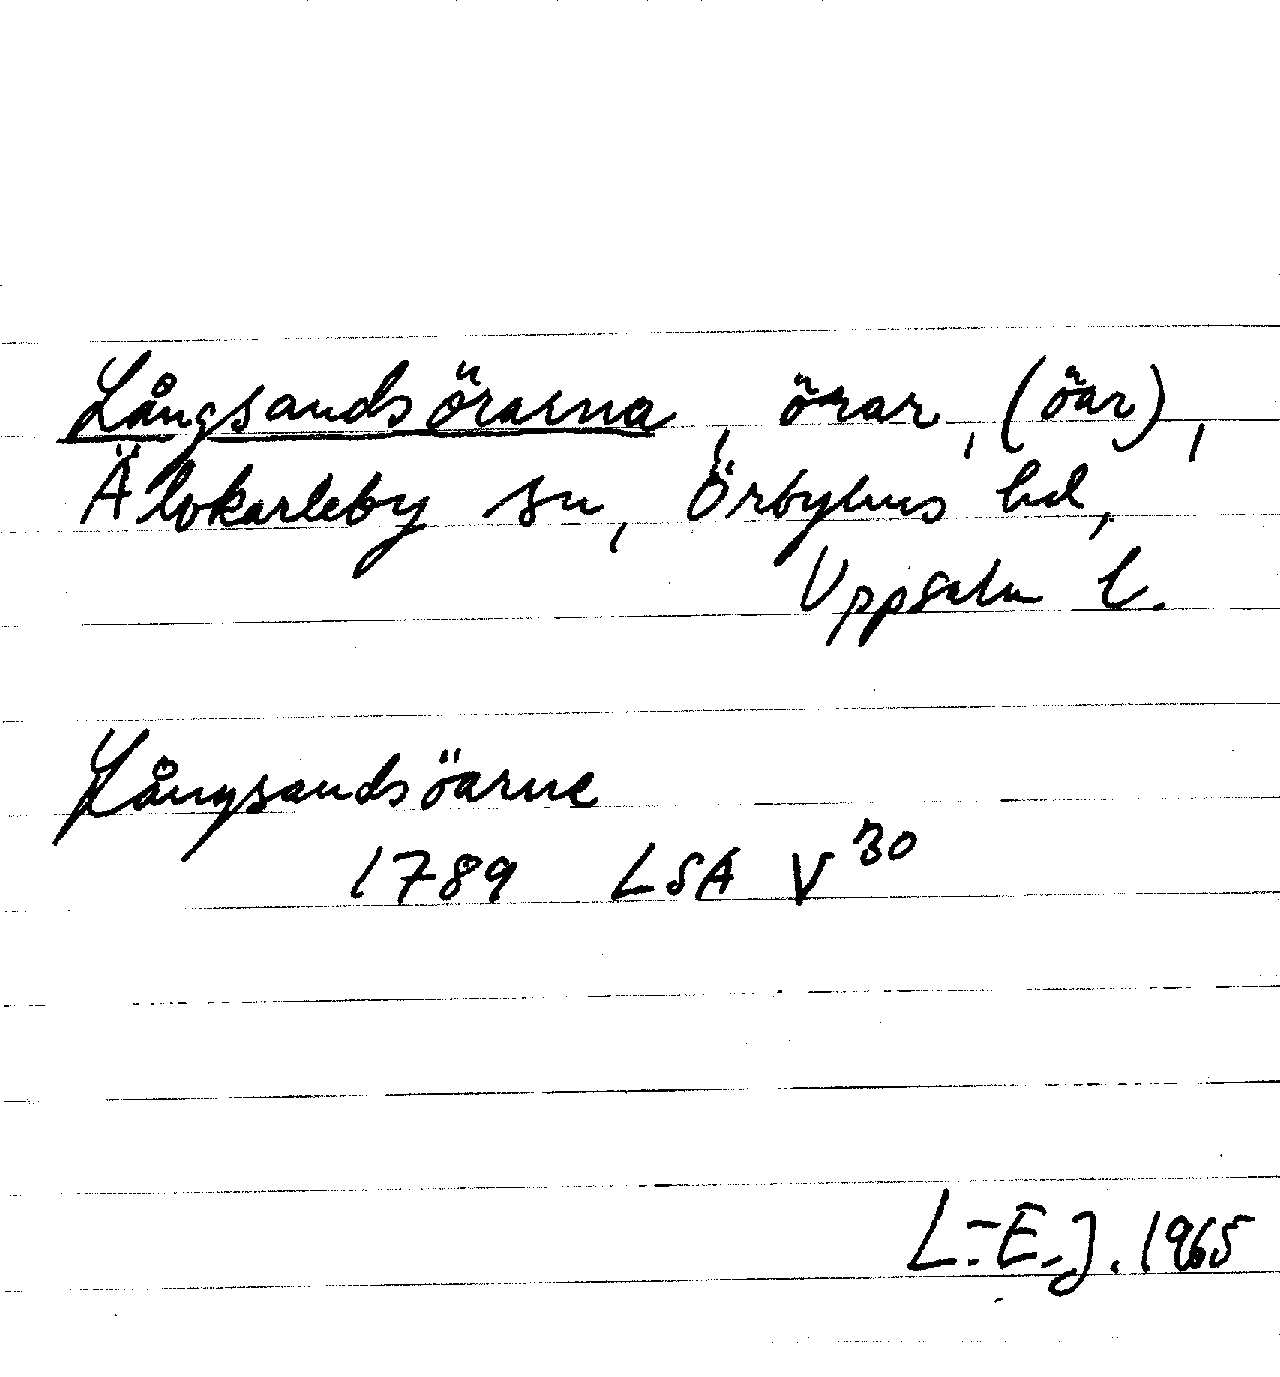 Långsandsörarna, örar, (öar),
Älvkarleby sn, Örbyhus hd,
Uppsala l.
Långsandsöarne
1789 LSA V 30
L.-E. J. 1965